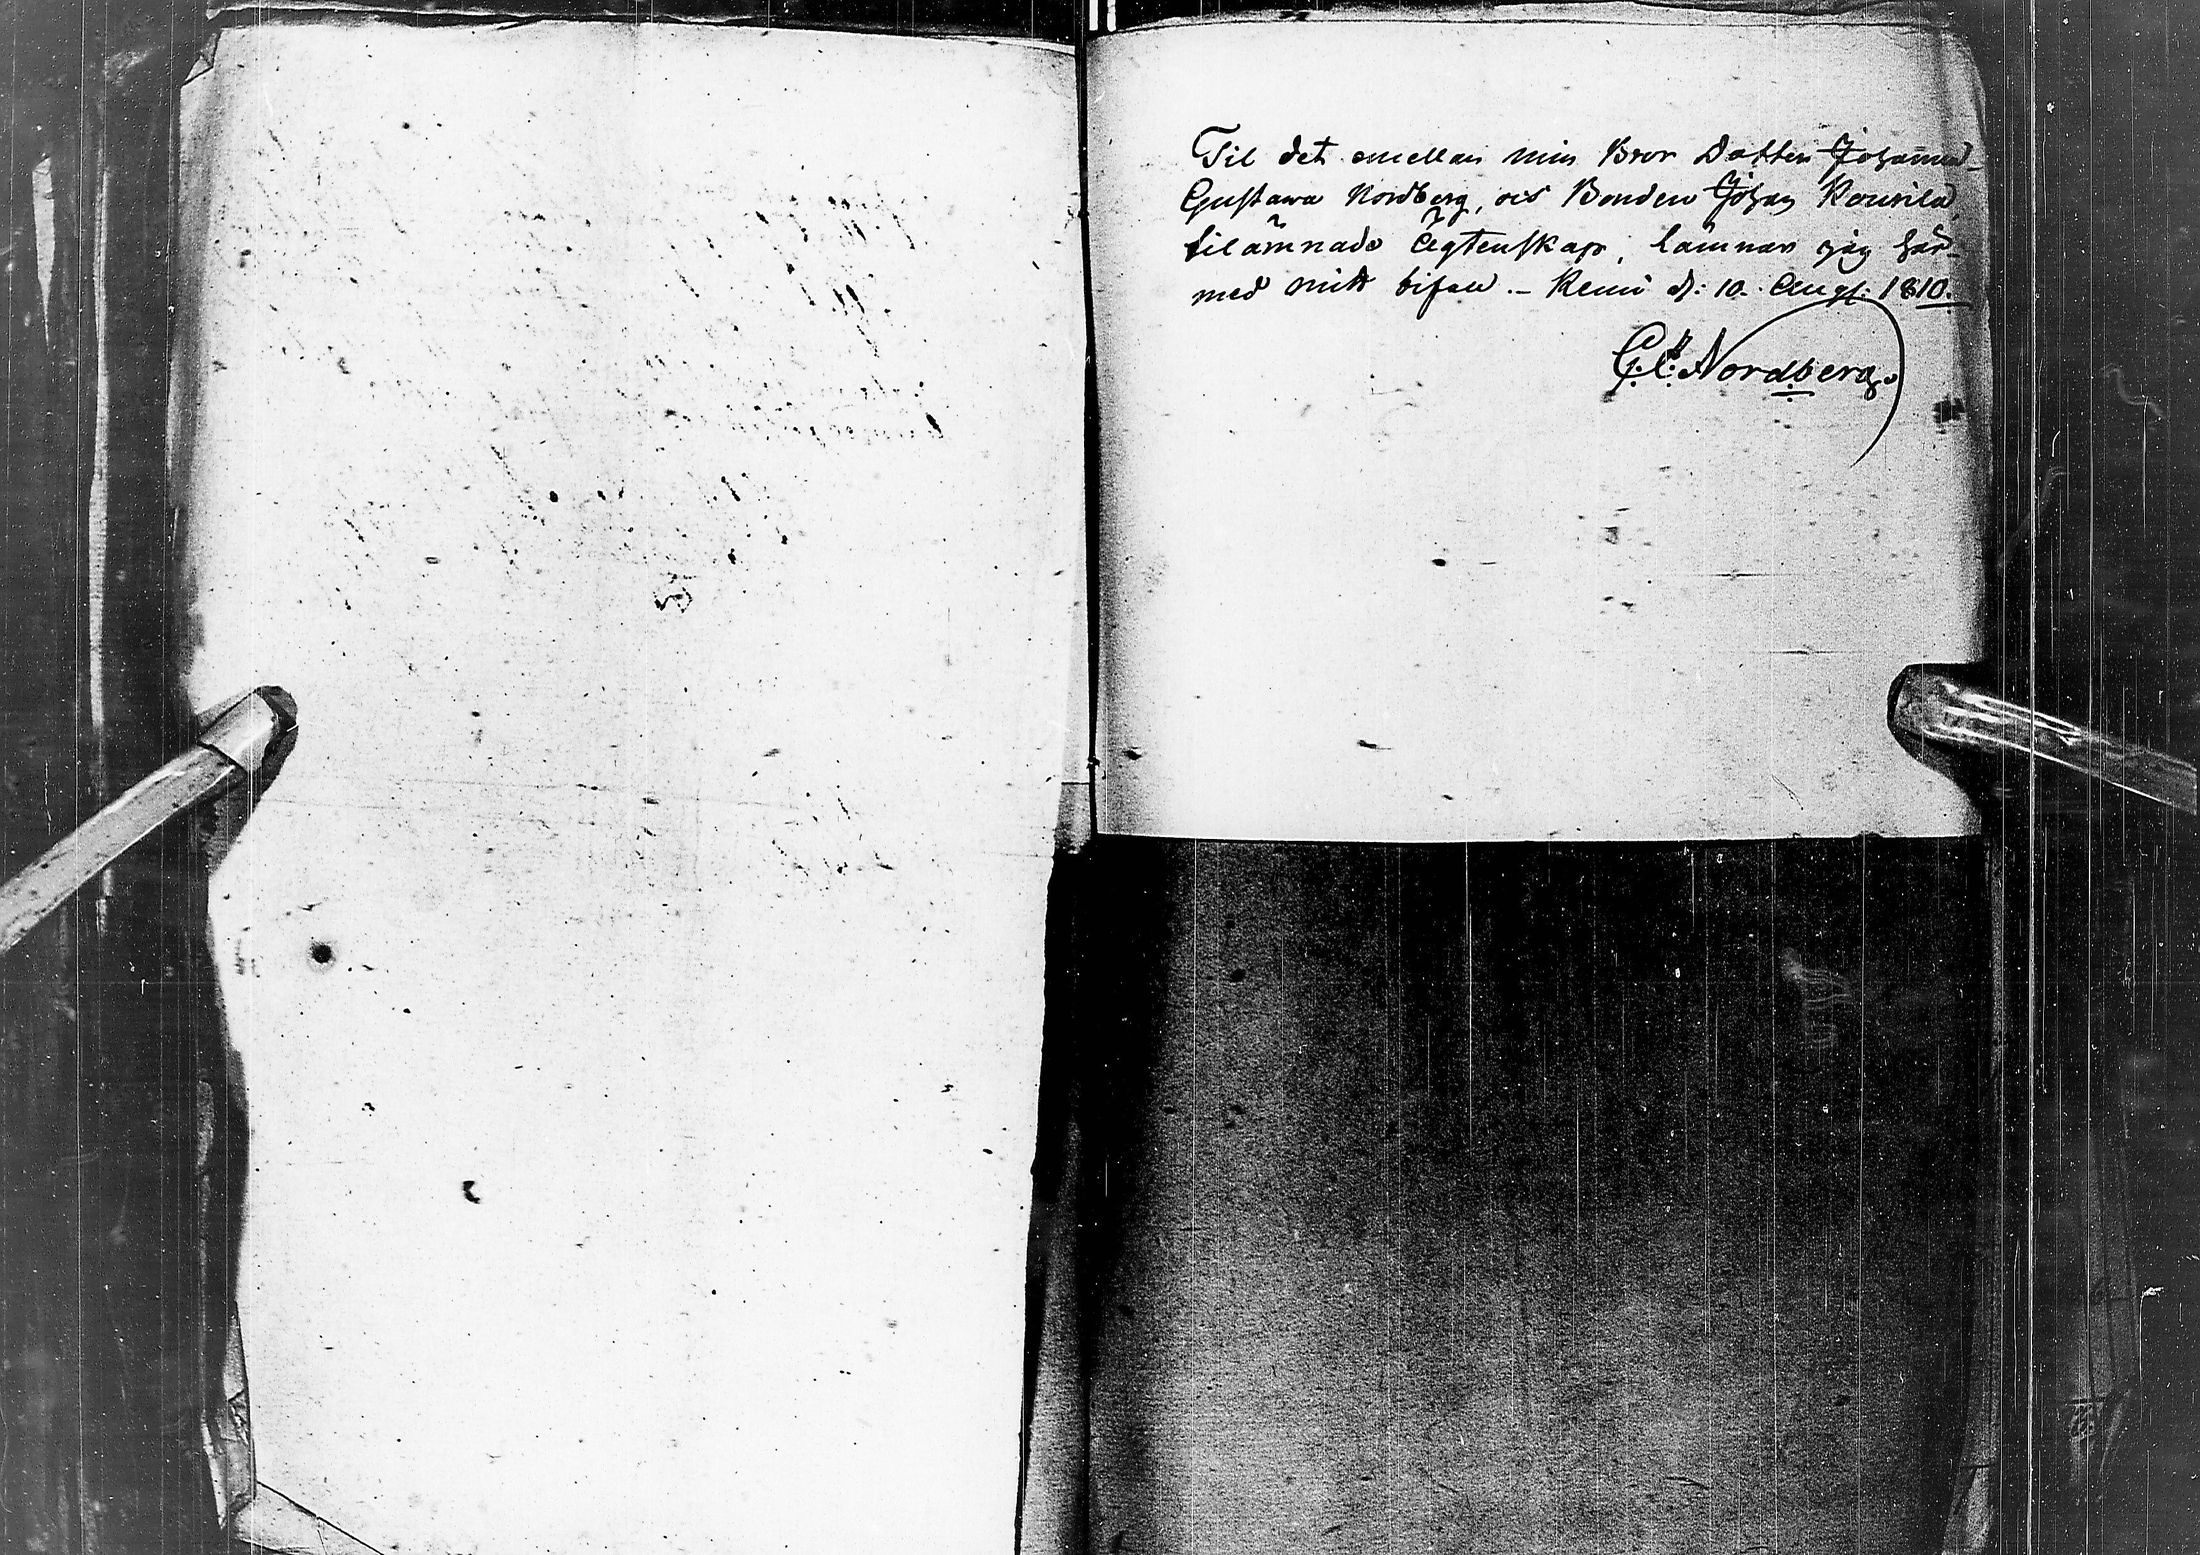 Til det emellan min Bror Dotter Johanna
Gustava Nordberg, och Bonden Johan Rourila
tilämnade Ägtenskap, lämnar jag här-
med mitt bifall. – Kemi d: 10. Aug: 1810.
Nordberg.